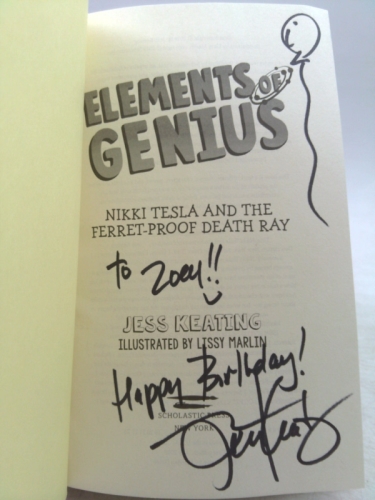 ELEMENTS OF
GENIUS
NIKKI TESLA AND THE
FERRET-PROOF DEATH RAY
To Zoey!!
JESS KEATING
ILLUSTRATED BY LISSY MARLIN
Happy Birthday!
SCHOLASTIC PRESS
NEW YORK